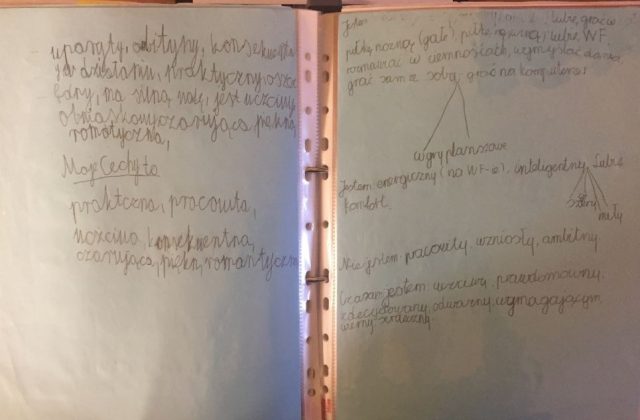 uparty, ambitny, konsekwentna
w działaniu, praktyczny, oszczę
dny, ma silną wolę, jest uczciwy
czarująca, piękna,
romatyczna,
Moje Cechy to
praktczna, pracowita,
uczciwa, konsekwentna,
czarująca, piękna, romantyczna
Jestem lubię grać w
piłkę nożną (gałę), piłkę ręczną, lubię WF.
rozmawiać w ciemnościach, wymyślać dania,
grać sam ze sobą, grać na komputerze,
w gry planszowe
Jestem: energiczny (na WF-ie), inteligentny, Lubię
Komfort.
miły
Nie jestem: pracowity, wzniosły, ambitny
Czasami jestem: uczciwy, prawdomówny,
zdecydowany, odważny, wymagającym,
wierny, serdeczny.